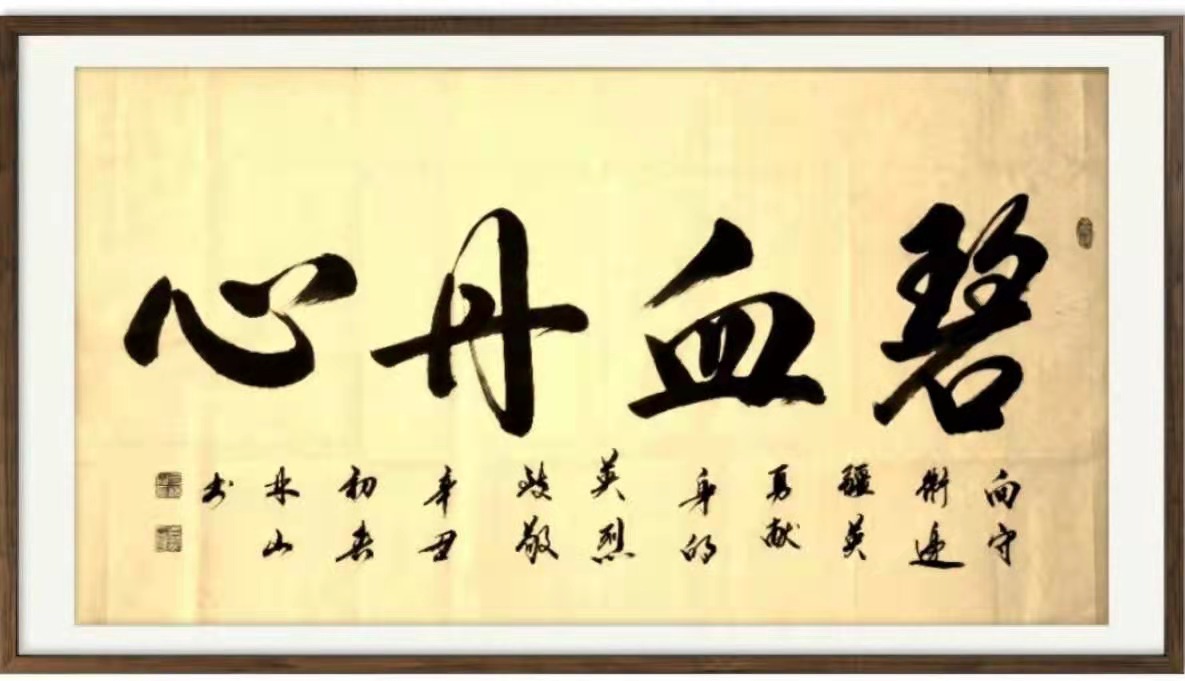 碧血丹心
向守
衛邊
疆英
勇献
身的
英烈
致敬
辛丑
初春
林山
书